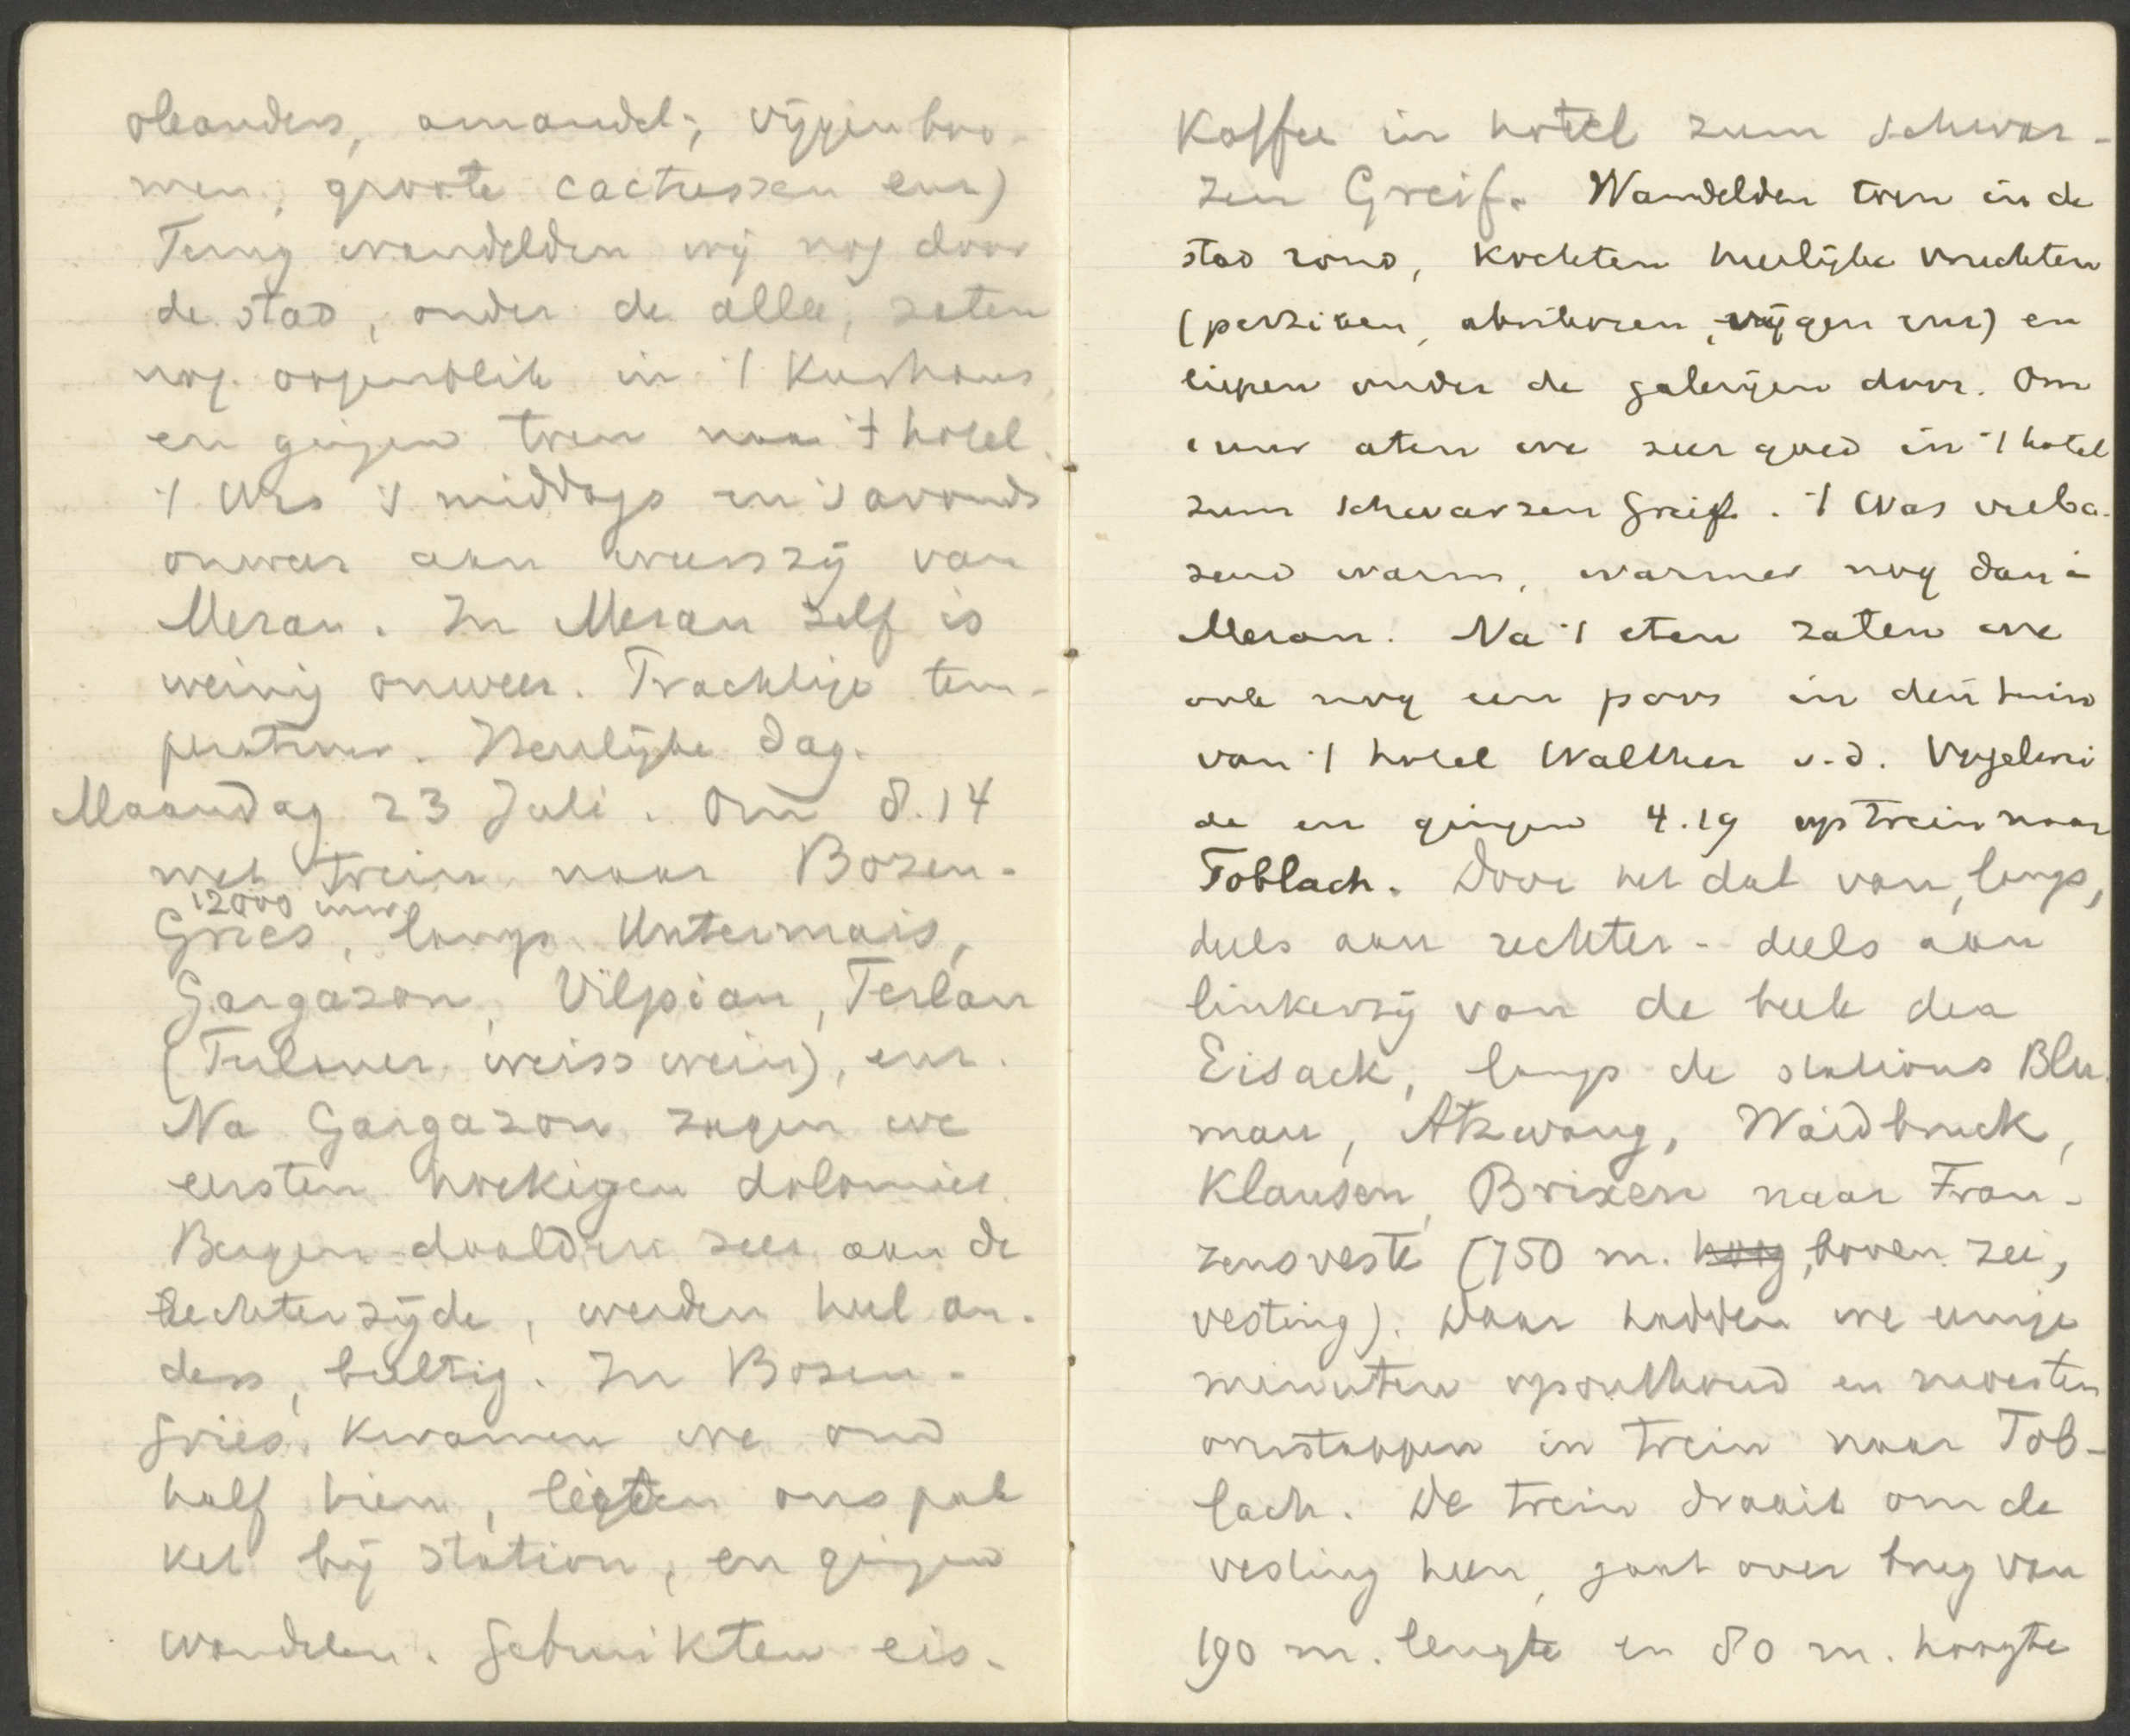 oleanders, amandel-, vijgenboo-
men, groote cactussen enz)
Terug wandelden wij nog door
de stad, onder de allee, zaten
nog oogenblik in 't Kurhaus
en gingen toen naar 't hotel.
't Was 's middags en 's avonds
onweer aan weerszij van
Meran. In Meran zelf is
weinig onweer. Prachtige tem-
peratuur. Heerlijke dag.
Maandag 23 Juli. Om 8.14
met trein naar Bozen-
12000 inw.
Gries, langs Untermais,
Gargazon, Vilpian, Terlan
(Terlaner weisswein), enz.
Na Gargazon zagen we
eersten hoekigen dolomiet.
Bergen daalden zeer aan de
rechterzijde, werden heel an-
ders, bultig. In Bozen-
Gries kwamen we om
half tien, lieten ons pak
ket bij station, en gingen
wandelen. Gebruikten eis-
Kaffee in hotel zum schwar-
zen Greif. Wandelden toen in de
stad rond, kochten heerlijke vruchten
(perziken, abrikozen, vijgen enz) en
liepen onder de galerijen door. Om
1 uur aten we zeer goed in 't hotel
zum schwarzen Greif. 't Was verba-
zend warm, warmer nog dan i
Meran. Na 't eten zaten we
ook nog een poos in den tuin
van 't hotel Walther v.d. Vogelwei
de en gingen 4.19 op trein naar
Toblach. Door het dal van, langs,
deels aan rechter- deels aan
linkerzij van de beek den
Eisack, langs de stations Blu
mau, Atzwang, Waidbruck,
Klausen, Brixen naar Fran-
zensveste (750 m. hoog, boven zee,
vesting). Daar hadden we eenige
minuten oponthoud en moesten
overstappen in trein naar Tob-
lach. De trein draait om de
vesting heen, gaat over brug van
190 m. lengte en 80 m. hoogte